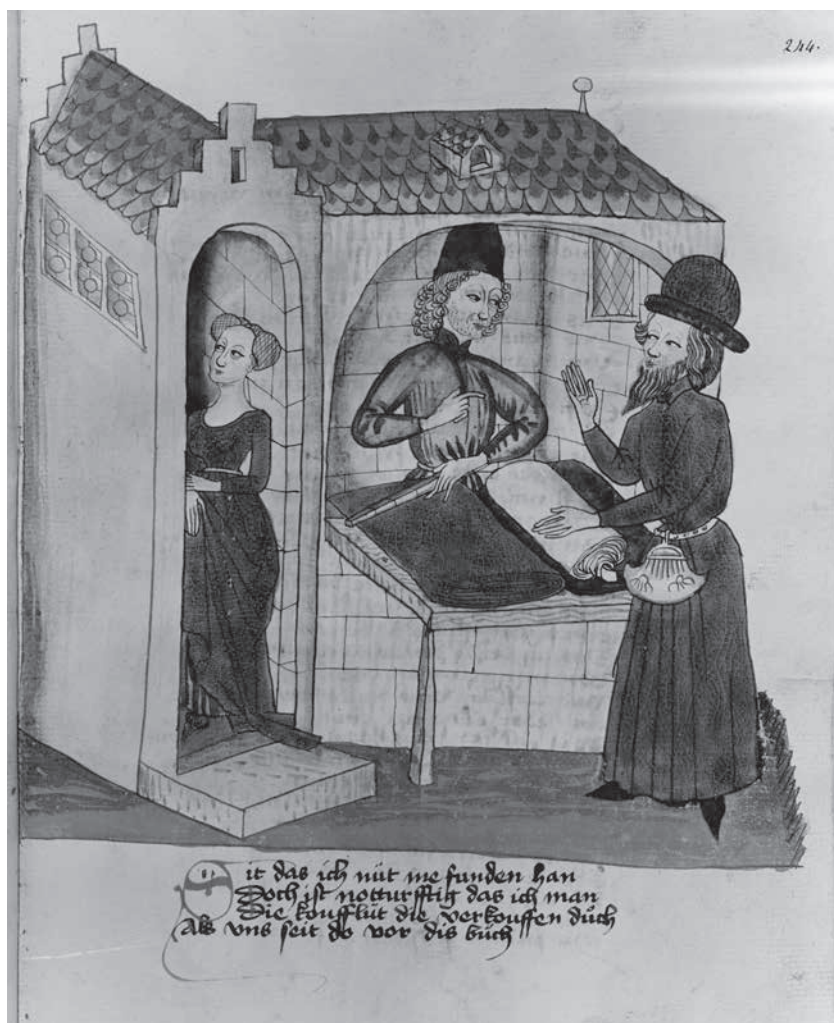 244.
Sit das ich nüt me funden han
Doch ist notturfftig das ich man
Die koufflüt die verkouffen důch
Als vns seit do vor dis bůch